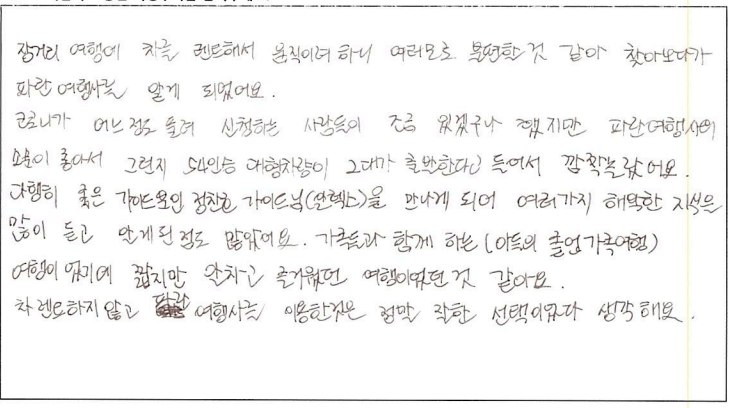 장거리 여행에 차를 렌트해서 움직이려 하니 여러모로 불편한 것 같아 찾아보다가
파란 여행사를 알게 되었어요.
코로나가 어느정도 풀려 신청하는 사람들이 조금 있겠구나 했지만 파란여행사의
소문이 좋아서 그런지 54인승 대형차량이 2대가 출발한다고 들어서 깜짝놀랐어요.
다행히 좋은 가이드분인 정찬호 가이드님(알렉스)을 만나게 되어 여러가지 해박한 지식을
많이 듣고 알게된 점도 많았어요. 가족들과 함께 하는 (아들의 졸업가족여행)
여행이었기에 짧지만 알차고 즐거웠던 여행이었던 것 같아요.
차 렌트하지 않고 파란 여행사를 이용한것은 정말 잘한 선택이었다 생각해요.